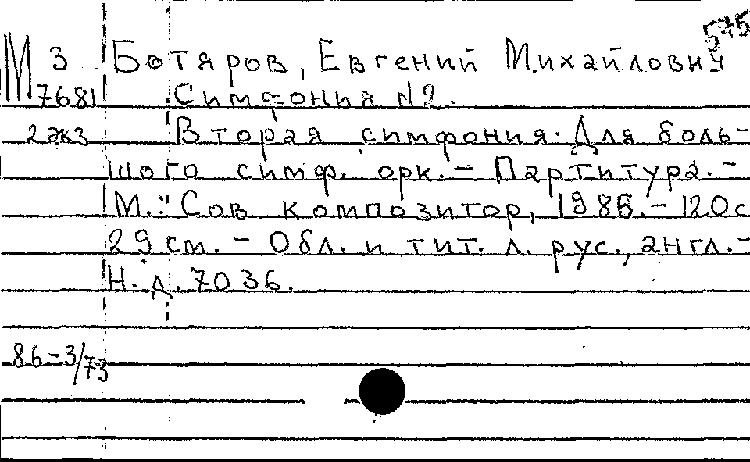 575
М 3 Ботяров, Евгений Михайлович
7681 Симфония №2.
2 экз Вторая симфония. Для боль-
шого симф. орк. – Партитура. –
М.: Сов композитор, 1986. – 120с
29 см. – Обл. и тит. л. рус., англ. –
Н. д. 7036.
86-3/73